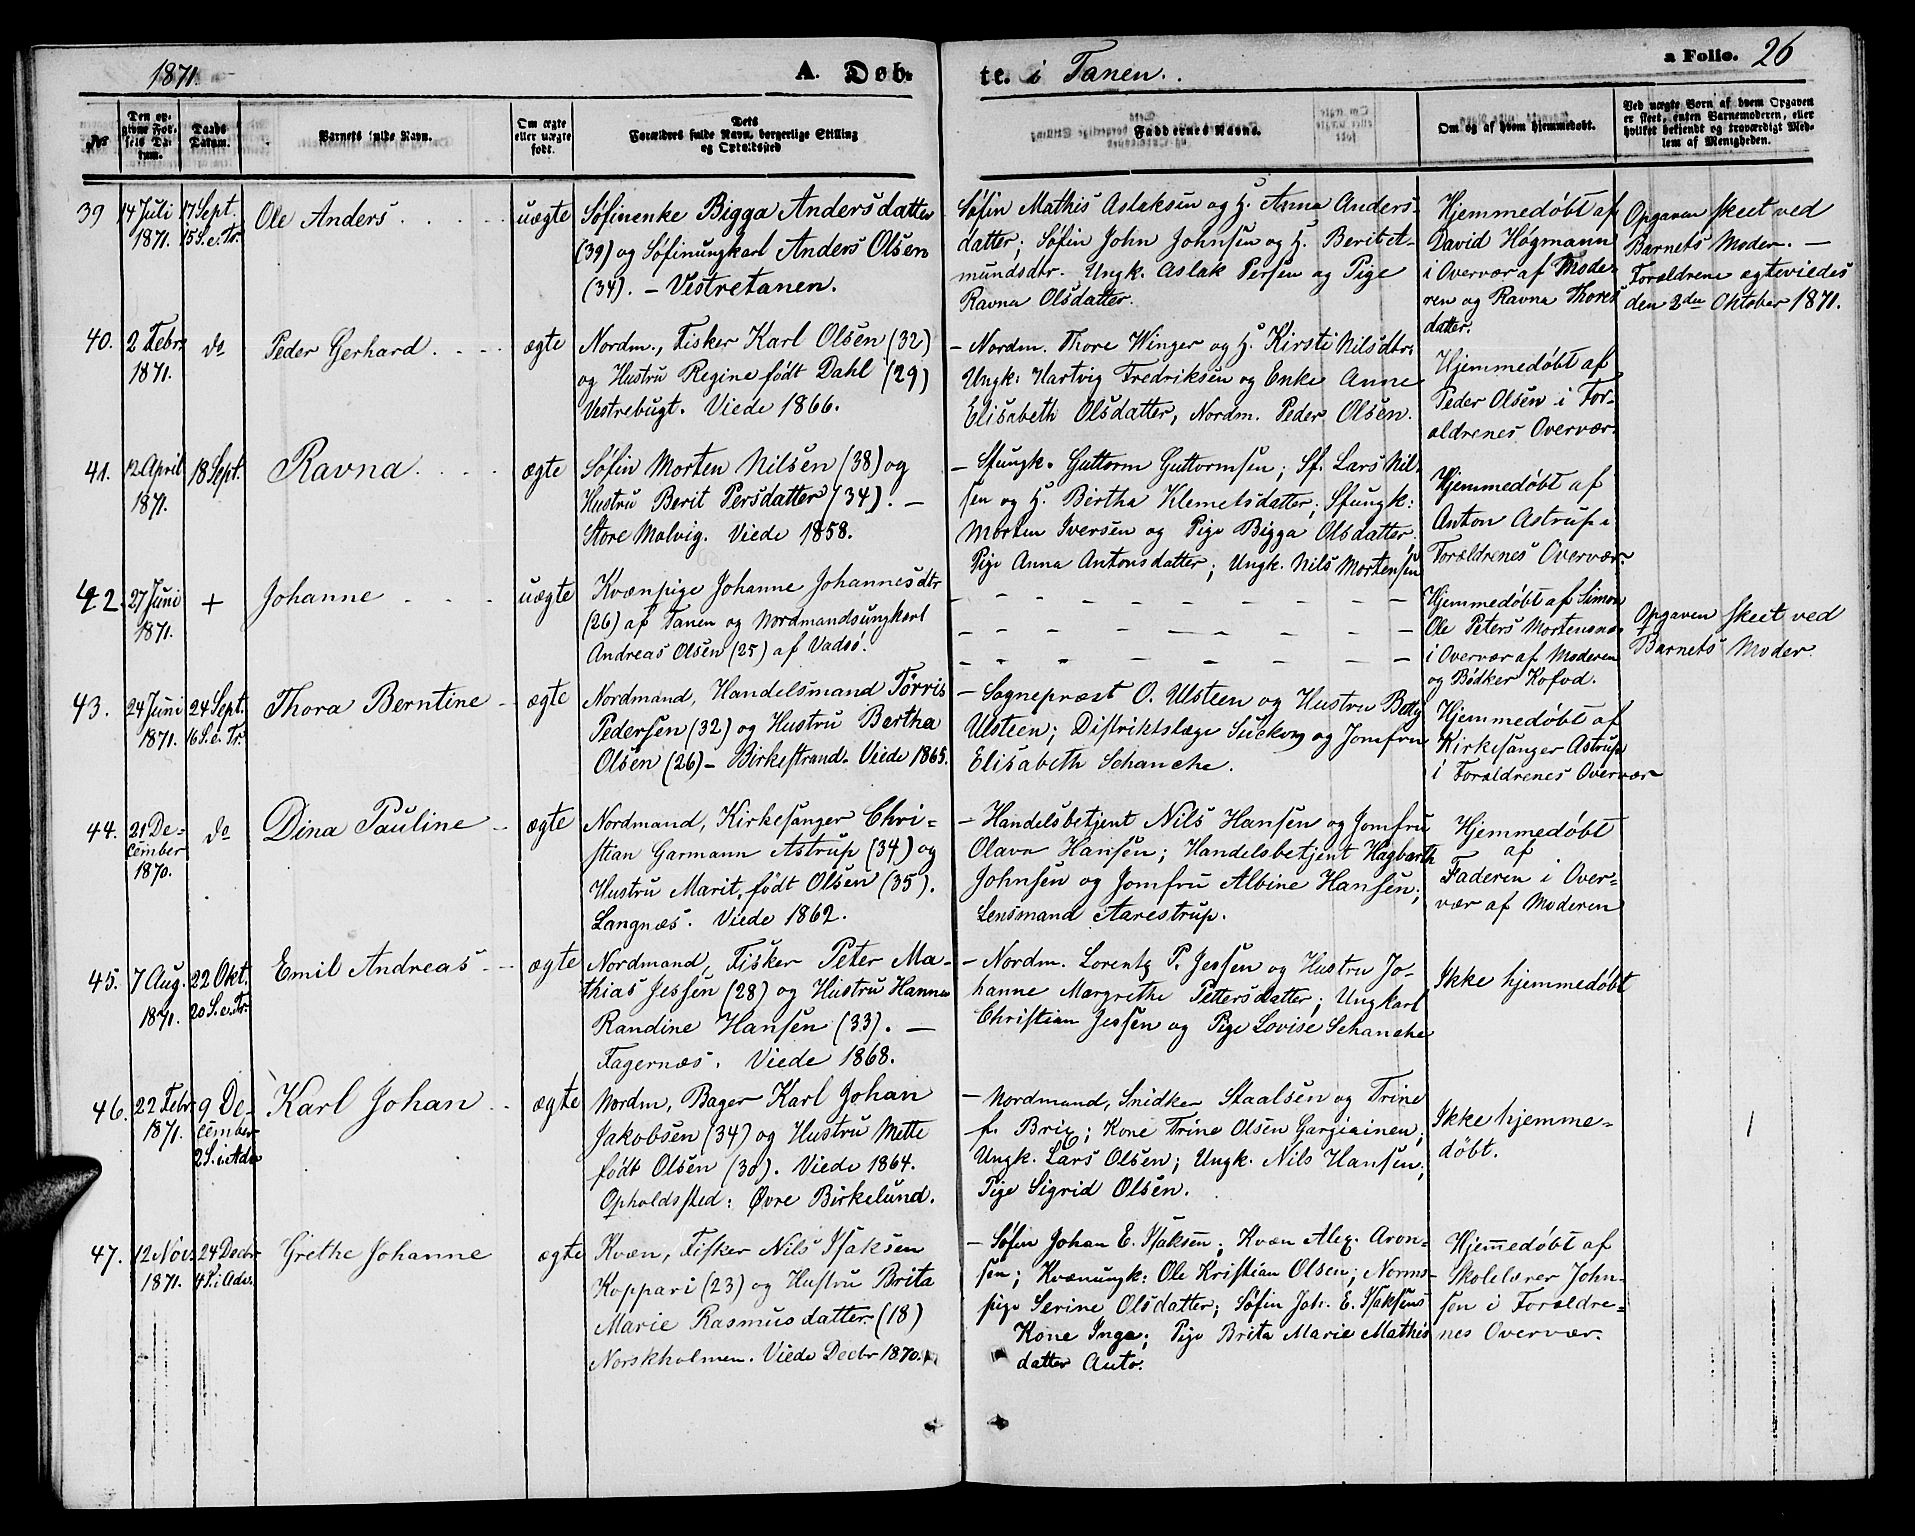 1871.
A. Døb-
te. i Tanen.
a Folio. 26
No
Den opgivne Fødsels Datum.
Daabs Datum.
Barnets fulde Navn.
Om ægte eller uægte født.
Dets
Forældres fulde Navn, borgerlige Stilling
og Opholdssted
Faddernes Navne.
Om og af hvem hjemmedøbt.
Ved uægte Børn af hvem Opgaven
er skeet, enten Barnemoderen, eller
hvilket bekjendt og troværdigt Med-
lem af Menigheden.
39
14 Juli
1871.
17 Sept.
15 S. e. Tr.
Ole Anders
uægte
Søfinenke Bigga Andersdatter
(39) og Søfinungkarl Anders Olsen
(34). – Vestretanen.
Søfin Mathis Aslaksen og H. Anna Anders-
datter; Søfin John Johnsen og H. Berit A-
mundsdtr. Ungk. Aslak Persen og Pige
Ravna Olsdatter.
Hjemmedøbt af
David Høgmann
i Overvær af Mode-
ren og Ravna Thores
datter.
Opgaven skeet ved
Barnets Moder. –
Forældrene ægteviedes
den 2den Oktober 1871.
40.
2 Febr.
1871.
do
Peder Gerhard
ægte
Nordm., Fisker Karl Olsen (32)
og Hustru Regine født Dahl (29)
Vestrebugt. Viede 1866.
– Nordm. Thore Winger og H. Kirsti Nilsdtr.
Ungk: Hartvig Fredriksen og Enke Anne
Elisabeth Olsdatter, Nordm. Peder Olsen.
Hjemmedøbt af
Peder Olsen i For-
ældrenes Overvær.
41.
12 April
1871.
18 Sept.
Ravna
ægte
Søfin Morten Nilsen (38) og
Hustru Berit Persdatter (34). –
Store Molvig. Viede 1858.
– Sfungk. Guttorm Guttormsen; Sf. Lars Nil-
sen og H. Birtha Klemetsdatter; Sfungk:
Morten Iversen og Pige Bigga Olsdatter.
Pige Anna Antonsdatter; Ungk. Nils Mortensen
Hjemmedøbt af
Anton Astrup i
Forældrenes Overvær.
42.
27 Juni
1871.
+
Johanne
uægte
Kvænpige Johanne Johannesdtr
(26) af Tanen og Nordmandsungkarl
Andreas Olsen (25) af Vadsø.
Hjemmedøbt af Simon
Ole Peters Mortensnes
i Overvær af Moderen
og Bødker Kofod.
Opgaven skeet ved
Barnets Moder.
43.
24 Juni
1871.
24 Sept.
16 S. e. Tr.
Thora Berntine
ægte
Nordmand, Handelsmand Tørris
Pedersen (32) og Hustru Bertha
Olsen (26) – Birkestrand. Viede 1865.
– Sognepræst O. Ulsteen og Hustru Betty
Ulsteen; Distriktslæge Suckow og Jomfru
Elisabeth Schanche.
Hjemmedøbt af
Kirkesanger Astrup
i Forældrenes Overvær
44.
21 De-
cember
1870.
do
Dina Pauline
ægte
Nordmand, Kirkesanger Chri-
stian Garmann Astrup (34) og
Hustru Marit, født Olsen (35).
Langnæs. Viede 1862.
– Handelsbetjent Nils Hansen og Jomfru
Olava Hansen; Handelsbetjent Hagbarth
Johnsen og Jomfru Albine Hansen;
Lensmand Aarestrup.
Hjemmedøbt
af
Faderen i Over-
vær af Moderen
45.
7 Aug.
1871.
22 Okt.
20 S. e. Tr.
Emil Andreas
ægte
Nordmand, Fisker Peter Ma-
thias Jessen (28) og Hustru Hanna
Randine Hansen (33). –
Fagernæs. Viede 1868.
– Nordm. Lorentz P. Jessen og Hustru Jo-
hanne Margrethe Pettersdatter; Ungkarl
Christian Jessen og Pige Lovise Schanche
Ikke hjemmedøbt
46.
22 Febr.
1871.
9 De-
cember
2 S. i Adv
Karl Johan
ægte
Nordm, Bager Karl Johan
Jakobsen (34) og Hustru Mette
født Olsen (30). Viede 1864.
Opholdssted: Øvre Birkelund.
– Nordmand, Snidker Staalsen og Trine
f. Brix; Kone Trine Olsen Gargiainen;
Ungk. Lars Olsen; Ungk. Nils Hansen;
Pige Sigrid Olsen.
Ikke hjemme-
døbt.
47.
12 Nov.
1871.
24 Decbr
4 S. i Adv.
Grethe Johanne
ægte
Kvæn, Fisker Nils Isaksen
Koppari (23) og Hustru Brita
Marie Rasmusdatter (18)
Norskholmen. Viede Decbr 1870.
– Søfin Johan E. Isaksen; Kvæn Alex. Aron-
sen; Kvænungk: Ole Kristian Olsen; Norms-
pige Serine Olsdatter; Søfin Joh. E. Isaksens
Kone Inga; Pige Brita Marie Mathis
datter Auto.
Hjemmedøbt af
Skolelærer John-
sen i Forældre-
nes Overvær.